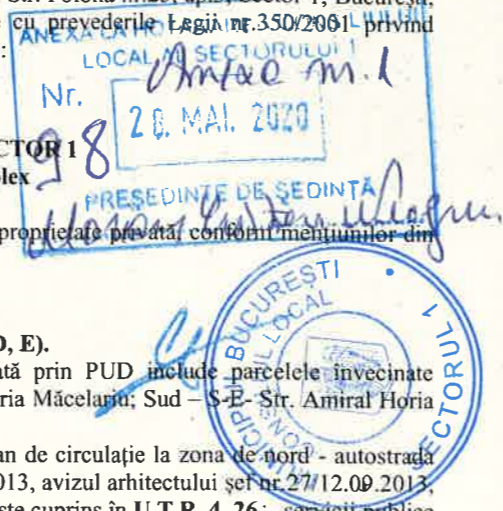 Str. Polonă nr.23, ap.3, Sector 1, București,
cu prevederile Legii nr.350/2001 privind
ANEXA LA HOTĂRÂREA CONSILIULUI
LOCAL AL SECTORULUI 1
Anexa nr. 1
Nr.
98
20. MAI. 2020
CTOR 1
plex
PREȘEDINTE DE ȘEDINȚĂ
proprietate privată, conform mențiunilor din
D, E).
ată prin PUD include parcelele învecinate
oria Măcelariu; Sud – S-E- Str. Amiral Horia
an de circulație la zona de nord - autostrada
013, avizul arhitectului șef nr.27/12.09.2013,
ste cuprins în U.T.R. 4, 26 ; servicii publice
MUNICIPIUL BUCUREȘTI
CONSILIUL LOCAL
SECTORUL 1